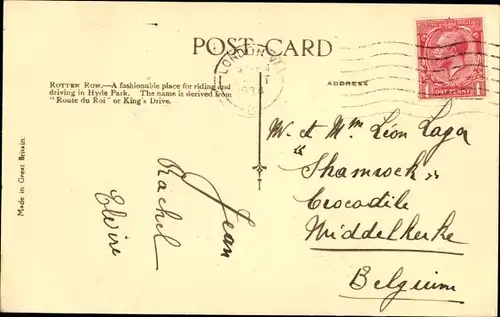 POST CARD
ROTTEN ROW.—A fashionable place for riding and
driving in Hyde Park. The name is derived from
"Route du Roi" or King's Drive.
ADDRESS
LONDON. W.
ONE PENNY
Made in Great Britain.
M. et Mme Léon Lagar
"Shamrock"
Crocodile
Middelkerke
Belgium
Jean
Rachel
Elvire